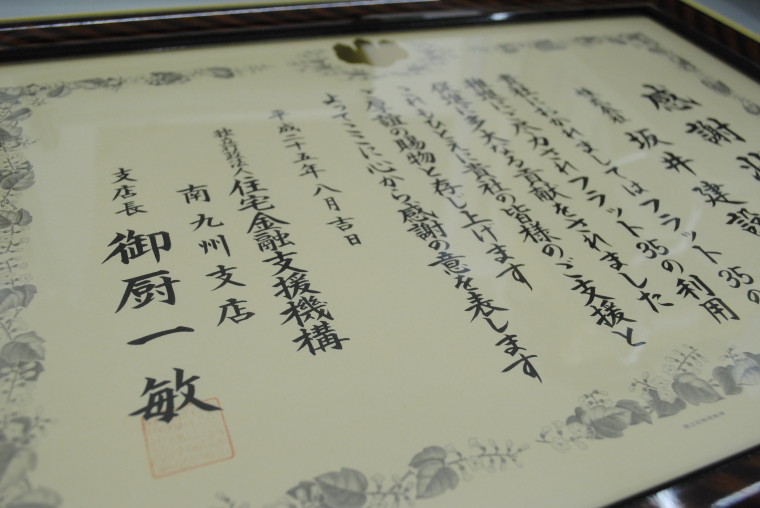 感謝状
株式会社
坂井建設
貴社におかれましてはフラット35の
推進にご尽力されフラット35の利用
促進に多大なる貢献をされました
これもひとえに貴社の皆様のご支援と
ご尽力の賜物と存じ上げます
よってここに心から感謝の意を表します
平成二十五年八月吉日
独立行政法人住宅金融支援機構
南九州支店
支店長 御厨一敏